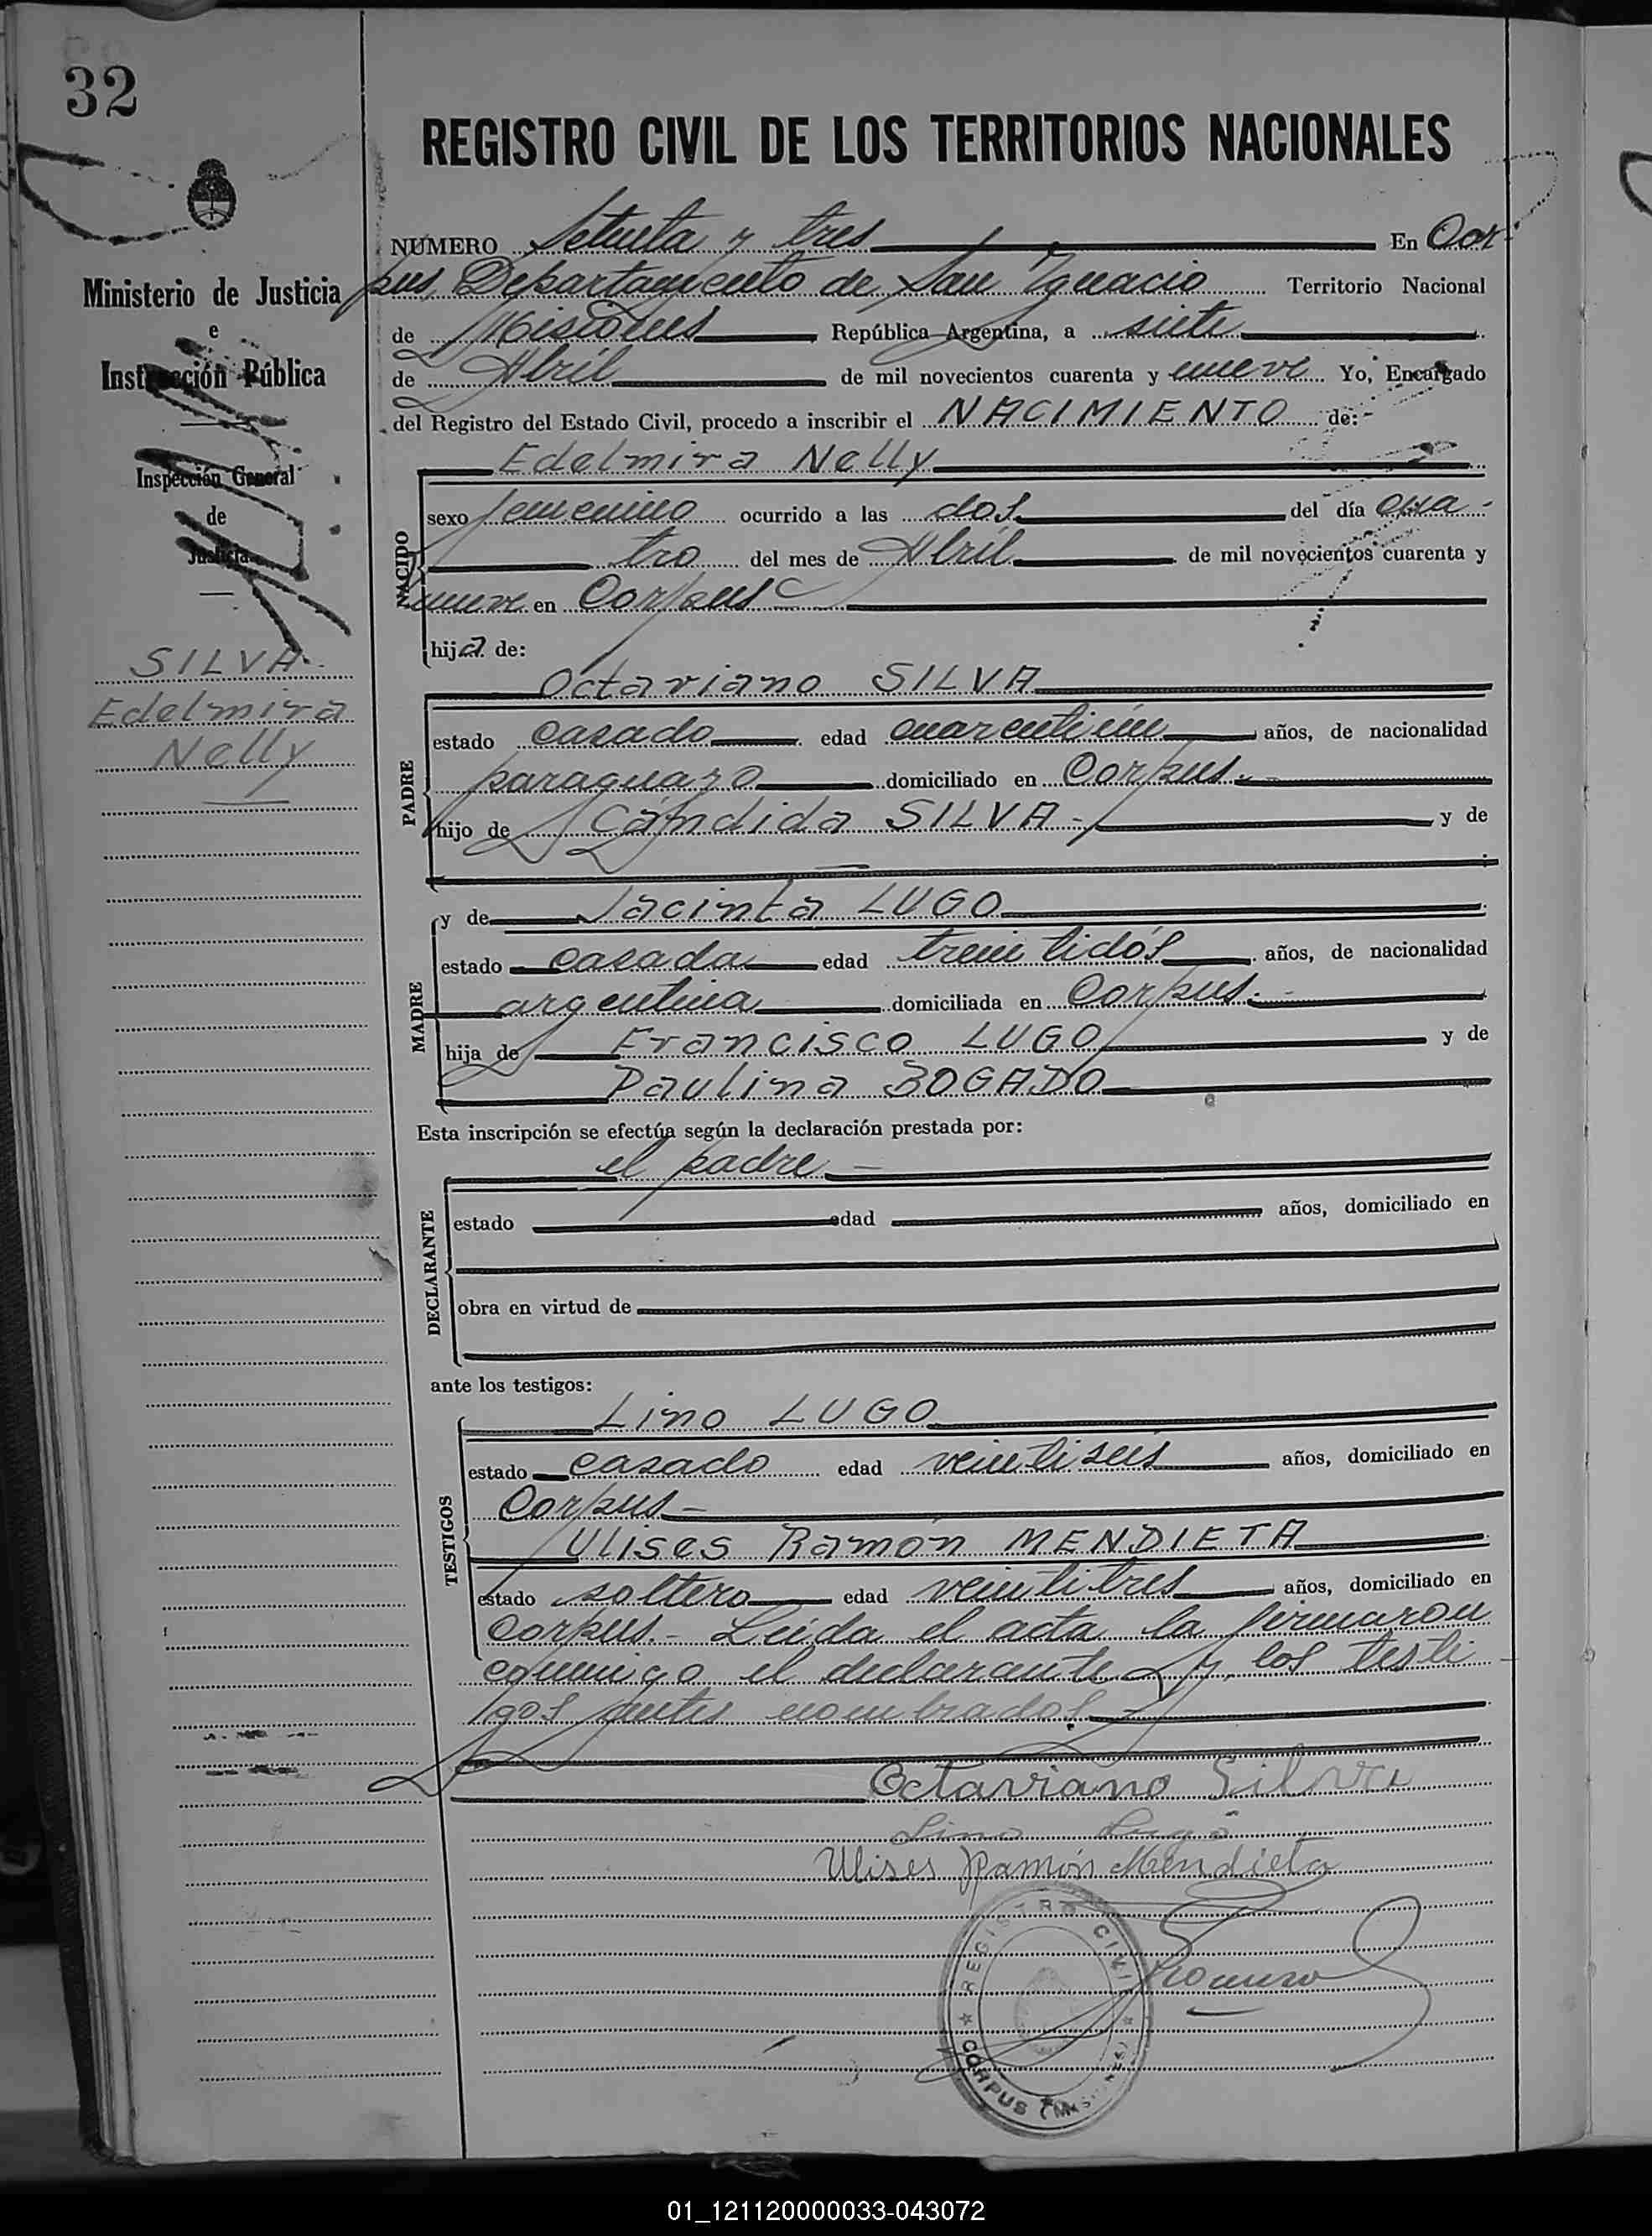 32
REGISTRO CIVIL DE LOS TERRITORIOS NACIONALES
Ministerio de Justicia
e
Instrucción Pública
Inspección General
de
Justicia
SILVA
Edelmira
Nelly
NUMERO Setenta y tres En Cor-
pus, Departamento de San Ignacio Territorio Nacional
de Misiones República Argentina, a siete
de Abril de mil novecientos cuarenta y nueve Yo, Encargado
del Registro del Estado Civil, procedo a inscribir el NACIMIENTO de:
NACIDO
Edelmira Nelly
sexo femenino ocurrido a las dos del día cua-
tro del mes de Abril de mil novecientos cuarenta y
nueve en Corpus
hija de:
PADRE
Octaviano SILVA
estado casado edad cuarentiún años, de nacionalidad
paraguayo domiciliado en Corpus.
hijo de Cándida SILVA.- y de
MADRE
y de Jacinta LUGO
estado casada edad treintidós años, de nacionalidad
argentina domiciliada en Corpus.-
hija de Francisco LUGO y de
Paulina BOGADO
Esta inscripción se efectúa según la declaración prestada por:
DECLARANTE
el padre
estado edad años, domiciliado en
obra en virtud de
ante los testigos:
TESTIGOS
Lino LUGO
estado casado edad veintiseis años, domiciliado en
Corpus-
Ulises Ramón MENDIETA
estado soltero edad veintitres años, domiciliado en
Corpus.- Leída el acta la firmaron
conmigo el declarante y los testi
gos antes nombrados.-
Octaviano Silva
Lino Lugo
Ulises Ramón Mendieta
REGISTRO CIVIL
CORPUS (MISIONES)
01_121120000033-043072